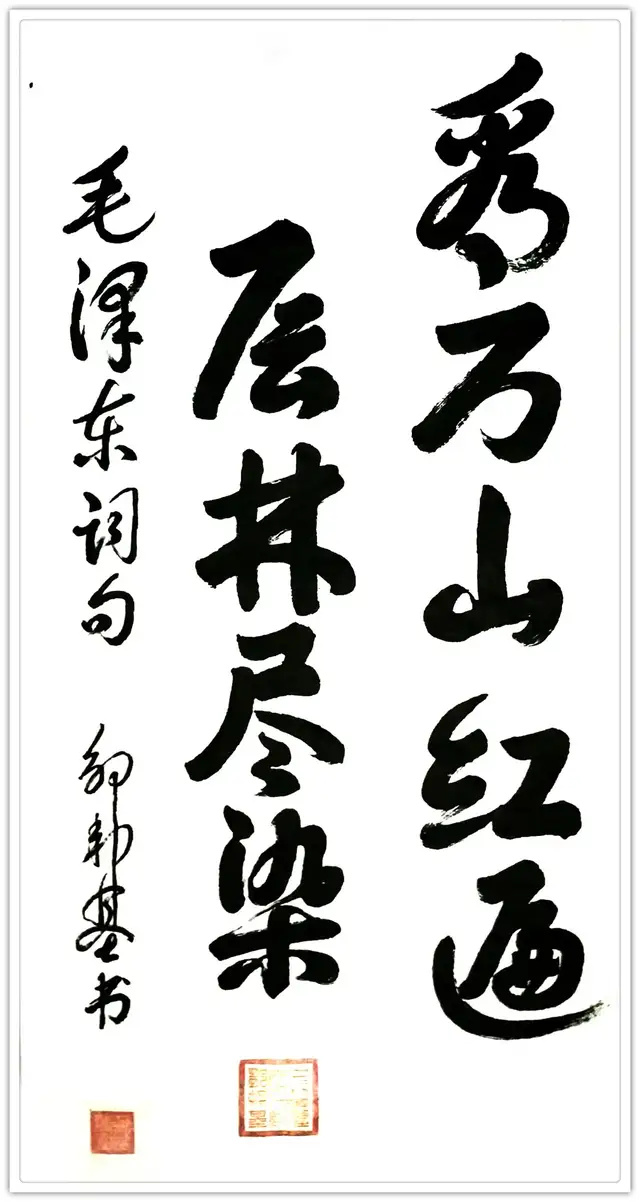 看万山红遍
层林尽染
毛泽东词句 基书